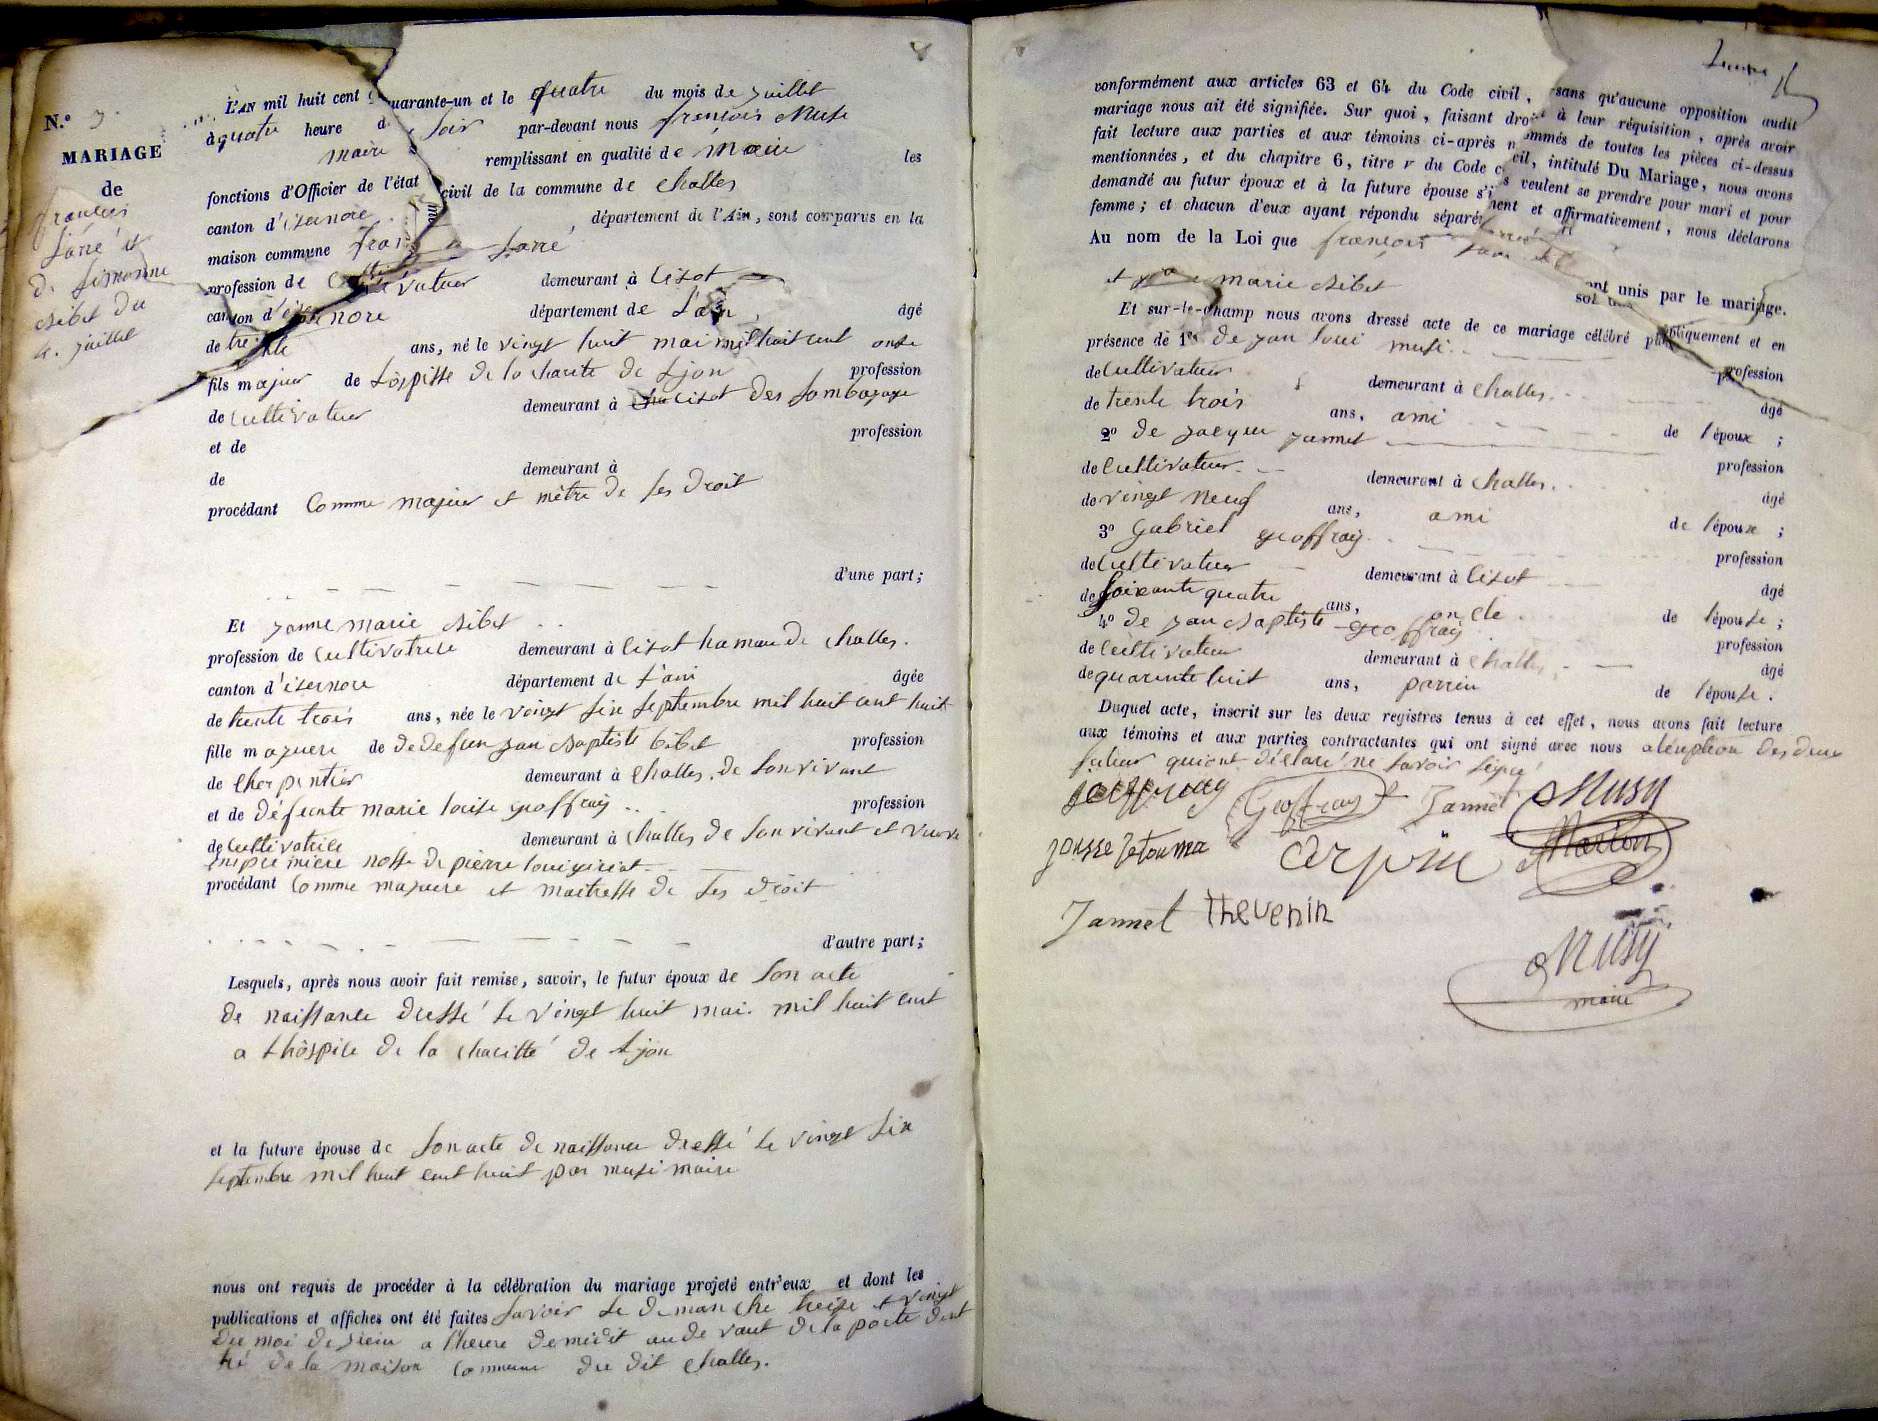 N.o 3
MARIAGE
de
françois
Sarré et
Bibet du
4. juillet
L'AN mil huit cent quarante-un et le quatre du mois de juillet
à quatre heure d soir par-devant nous françois Musi
maire remplissant en qualité de maire les
fonctions d'Officier de l'état civil de la commune de challes
canton d'isernore département de l'Ain, sont comparus en la
maison commune fran sarré
profession de cultivateur demeurant à cisot
canton d'isernore département de L'ain, âgé
de trente ans, né le vingt huit mai mil huit cent onse
fils majeur de L'ospisse de la charite de Lyon profession
de cultivateur demeurant à cisot des
et de profession
de demeurant à
procédant Comme majeur et mètre de ses droit
d'une part;
Et janne marie Bibet
profession de cultivatrise demeurant à cisot hamau de challes.
canton d'isernore département de l'ain âgée
de trente trois ans, née le vingt six septembre mil huit cent huit
fille majeure de dedefun jan Baptiste bibet profession
de charpentier demeurant à challes. de son vivant
et de défunte marie louise geoffray profession
de cultivatrice demeurant à challes de son vivant et veuve
enpremiere nosse de pierre loui
procédant Comme majeure et maitresse de ses droit
d'autre part;
Lesquels, après nous avoir fait remise, savoir, le futur époux de son acte
de naissance dressé le vingt huit mai mil huit cent
a Lhòspice de la charitté de Lyon
et la future épouse de son acte de naissance dressé le vingt six
septembre mil huit cent huit par musi maire
nous ont requis de procéder à la célébration du mariage projeté entr'eux et dont les
publications et affiches ont été faites savoir le dimanche treise et vingt
du moi de juin a l'heure de midit au de vant de la porte dent
ré de la maison commune du dit challes.
conformément aux articles 63 et 64 du Code civil, sans qu'aucune opposition audit
mariage nous ait été signifiée. Sur quoi, faisant droit à leur réquisition, après avoir
fait lecture aux parties et aux témoins ci-après nommés de toutes les pièces ci-dessus
mentionnées, et du chapitre 6, titre v du Code civil, intitulé Du Mariage, nous avons
demandé au futur époux et à la future épouse s'ils veulent se prendre pour mari et pour
femme; et chacun d'eux ayant répondu séparément et affirmativement, nous déclarons
Au nom de la Loi que françois sarré
et marie Bibet
sont unis par le mariage.
Et sur-le-champ nous avons dressé acte de ce mariage célébré publiquement et en
présence de 1er de jan loui musi profession
de cultivateur demeurant à challes. âgé
de trente trois ans, ami de l'époux;
2o de jacque jannet profession
de cultivateur demeurant à challes. âgé
de vingt neuf ans, ami de l'épouse;
3o gabriel geoffray profession
de cultivateur demeurant à cisot âgé
de soixante quatre ans, oncle de l'épouse;
4o de jan Baptiste geoffray profession
de cultivateur demeurant à challes âgé
de quarante huit ans, parrin de l'épouse.
Duquel acte, inscrit sur les deux registres tenus à cet effet, nous avons fait lecture
aux témoins et aux parties contractantes qui ont signé avec nous aléxeption des deux
futeur quiont déclaré ne savoir signé
Geoffray Jannet Musy
Marion
Jannet Thevenin
Musy
maire